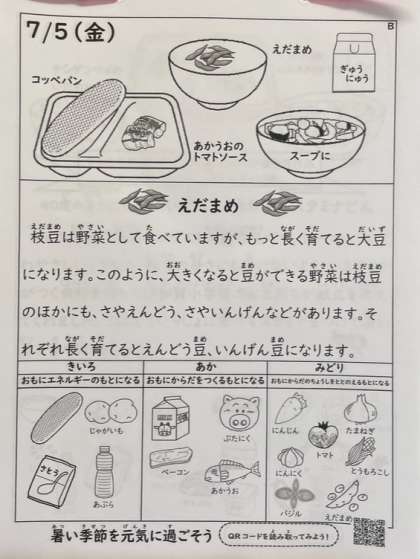 B
7/5(金)
えだまめ
ぎゅう
にゅう
コッペパン
あかうおの
トマトソース
スープに
えだまめ
枝豆は野菜として食べていますが、もっと長く育てると大豆
になります。このように、大きくなると豆ができる野菜は枝豆
のほかにも、さやえんどう、さやいんげんなどがあります。そ
れぞれ長く育てるとえんどう豆、いんげん豆になります。
きいろ
あか
みどり
おもにエネルギーのもとになる
おもにからだをつくるもとになる
おもにからだのちょうしをととのえるもとになる
じゃがいも
さとう
あぶら
ぶたにく
ベーコン
あかうお
にんじん
たまねぎ
トマト
にんにく
とうもろこし
バジル
えだまめ
暑い季節を元気に過ごそう
QRコードを読み取ってみよう!